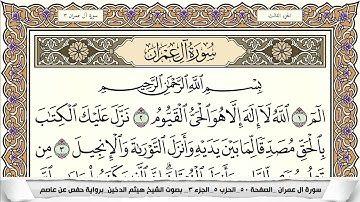 الجزء الثالث
سورة آل عمران ٣
سُورَةُ آلِ عِمْرَانَ
بِسْمِ اللَّهِ الرَّحْمَٰنِ الرَّحِيمِ
الٓمٓ ١ اللَّهُ لَا إِلَٰهَ إِلَّا هُوَ الْحَيُّ الْقَيُّومُ ٢ نَزَّلَ عَلَيْكَ الْكِتَٰبَ
بِالْحَقِّ مُصَدِّقًا لِّمَا بَيْنَ يَدَيْهِ وَأَنزَلَ التَّوْرَىٰةَ وَالْإِنجِيلَ ٣ مِن
سورة ال عمران _الصفحة ٥٠_الحزب ٥_الجزء ٣_ بصوت الشيخ هيثم الدخين_برواية حفص عن عاصم